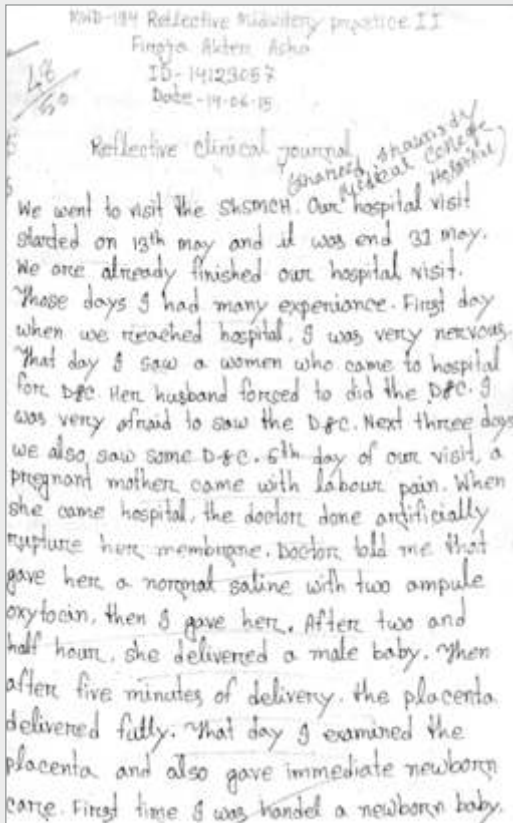 MWD-194 Reflective Midwifery practice II
Firoza Akter Asha
ID-14123057
Date-14-06-15
48/50
Reflective clinical journal
(Shaheed, Medical College Hospital)
We went to visit the ShSMCH. Our hospital visit
started on 13th may and it was end 31 may.
We are already finished our hospital visit.
Those days I had many experiance. First day
when we reached hospital, I was very nervous.
That day I saw a women who came to hospital
for D&C. Her husband forced to did the D&C. I
was very afraid to saw the D&C. Next three days
we also saw some D&C. 5th day of our visit, a
pregnant mother came with labour pain. When
she came hospital, the doctor done artificially
rupture her membrane. Doctor told me that
gave her a normal saline with two ampule
oxytocin, then I gave her. After two and
half hour, she delivered a male baby. Then
after five minutes of delivery, the placenta
delivered fully. That day I examined the
placenta and also gave immediate newborn
care. First time I was handel a newborn baby.